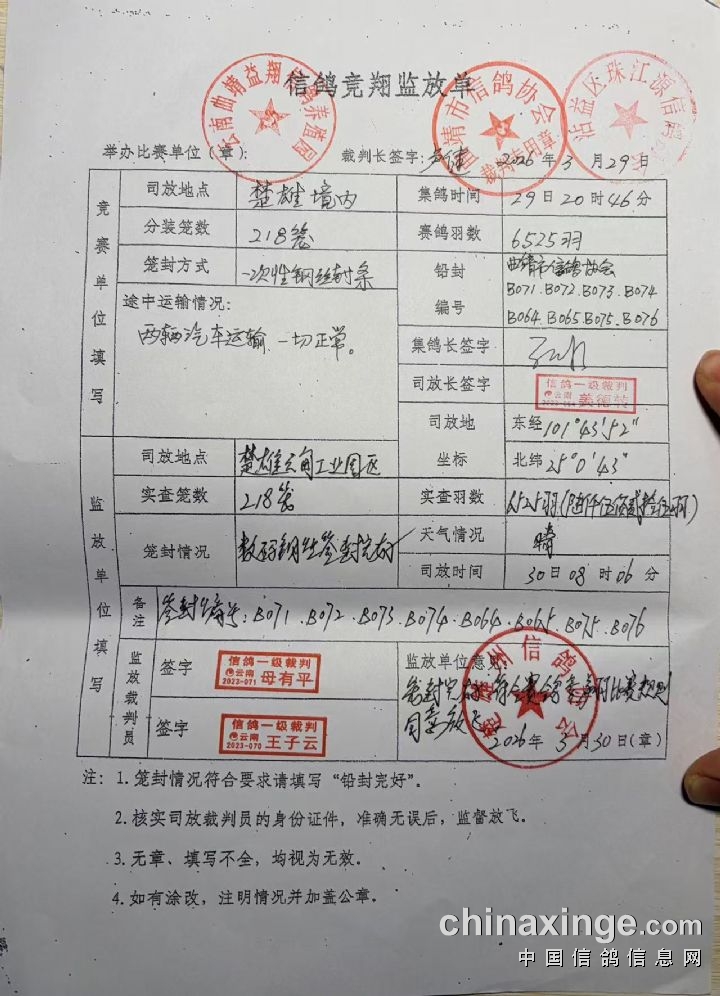 信鸽竞翔监放单
举办比赛单位(章): 裁判长签字: 2026年3月29日
竞赛单位填写
司放地点 楚雄境内 集鸽时间 29日20时46分
分装笼数 218笼 赛鸽羽数 6525羽
笼封方式 一次性钢丝封条 铅封编号 曲靖市信鸽协会
B071.B072.B073.B074
B064.B065.B075.B076
途中运输情况:
两辆汽车运输 一切正常。
集鸽长签字
司放长签字 信鸽一级裁判 云南
司放地坐标 东经 101°43′52″
北纬 25°0′43″
监放单位填写
司放地点 楚雄 工业园区
实查笼数 218笼 实查羽数 6525羽(陆仟伍佰贰拾伍羽)
笼封情况 天气情况 晴
司放时间 30日08时06分
备注 签封编号:B071.B072.B073.B074.B064.B065.B075.B076
监放裁判员
签字 信鸽一级裁判 云南 2023-071 母有平
签字 信鸽一级裁判 云南 2023-070 王子云
监放单位意见:
同意放飞
2026年3月30日(章)
注: 1.笼封情况符合要求请填写“铅封完好”。
2.核实司放裁判员的身份证件,准确无误后,监督放飞。
3.无章、填写不全,均视为无效。
4.如有涂改,注明情况并加盖公章。
曲靖市信鸽协会
裁判专用章
chinaxinge.com
中国信鸽信息网